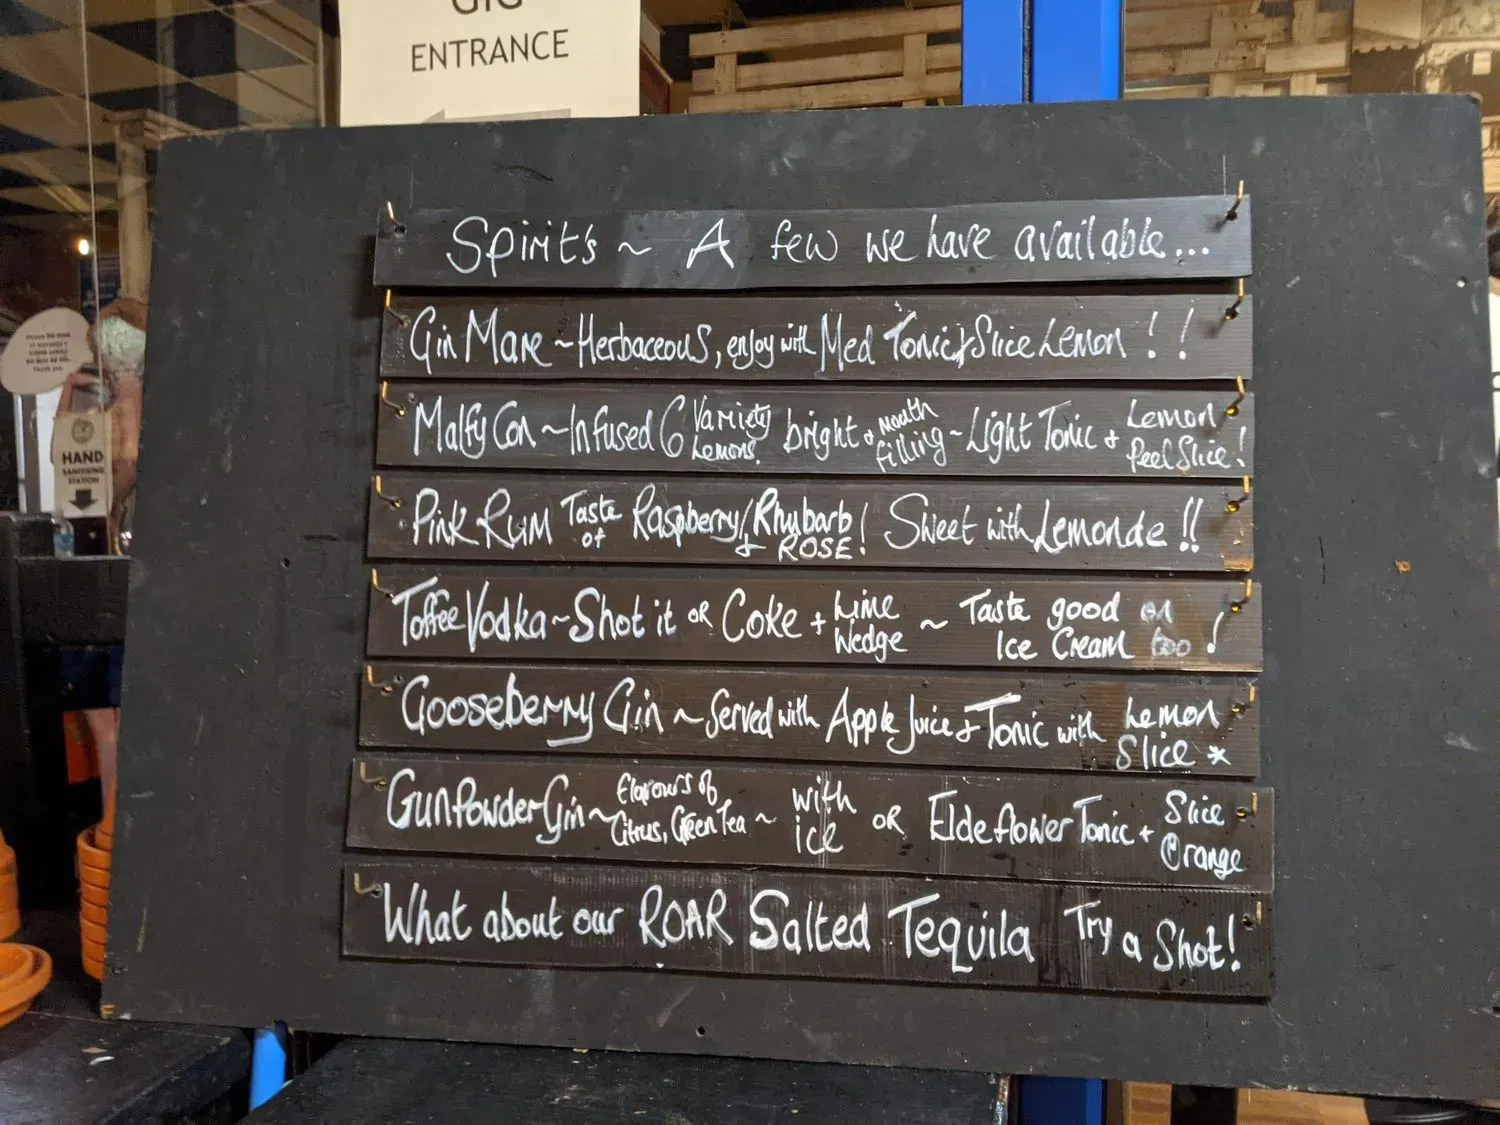 GIG
ENTRANCE
Spirit's ~ A few we have available...
Gin Mare ~ Herbaceous, enjoy with Med Tonic + Slice Lemon ! !
Malfy Con ~ Infused 6 Variety Lemons. bright + mouth filling ~ Light Tonic + Lemon Peel Slice!
Pink Rum Taste of Raspberry/Rhubarb & ROSE! Sweet with Lemonde !!
Toffee Vodka ~ Shot it OR Coke + Lime Wedge ~ Taste good on Ice Cream too !
Gooseberry Gin ~ Served with Apple Juice + Tonic with Lemon Slice *
Gunpowder Gin ~ Flavours of Citrus, Green Tea ~ with ice OR Elderflower Tonic + Slice Orange
What about our ROAR Salted Tequila Try a Shot!
HAND
SANITISING
STATION